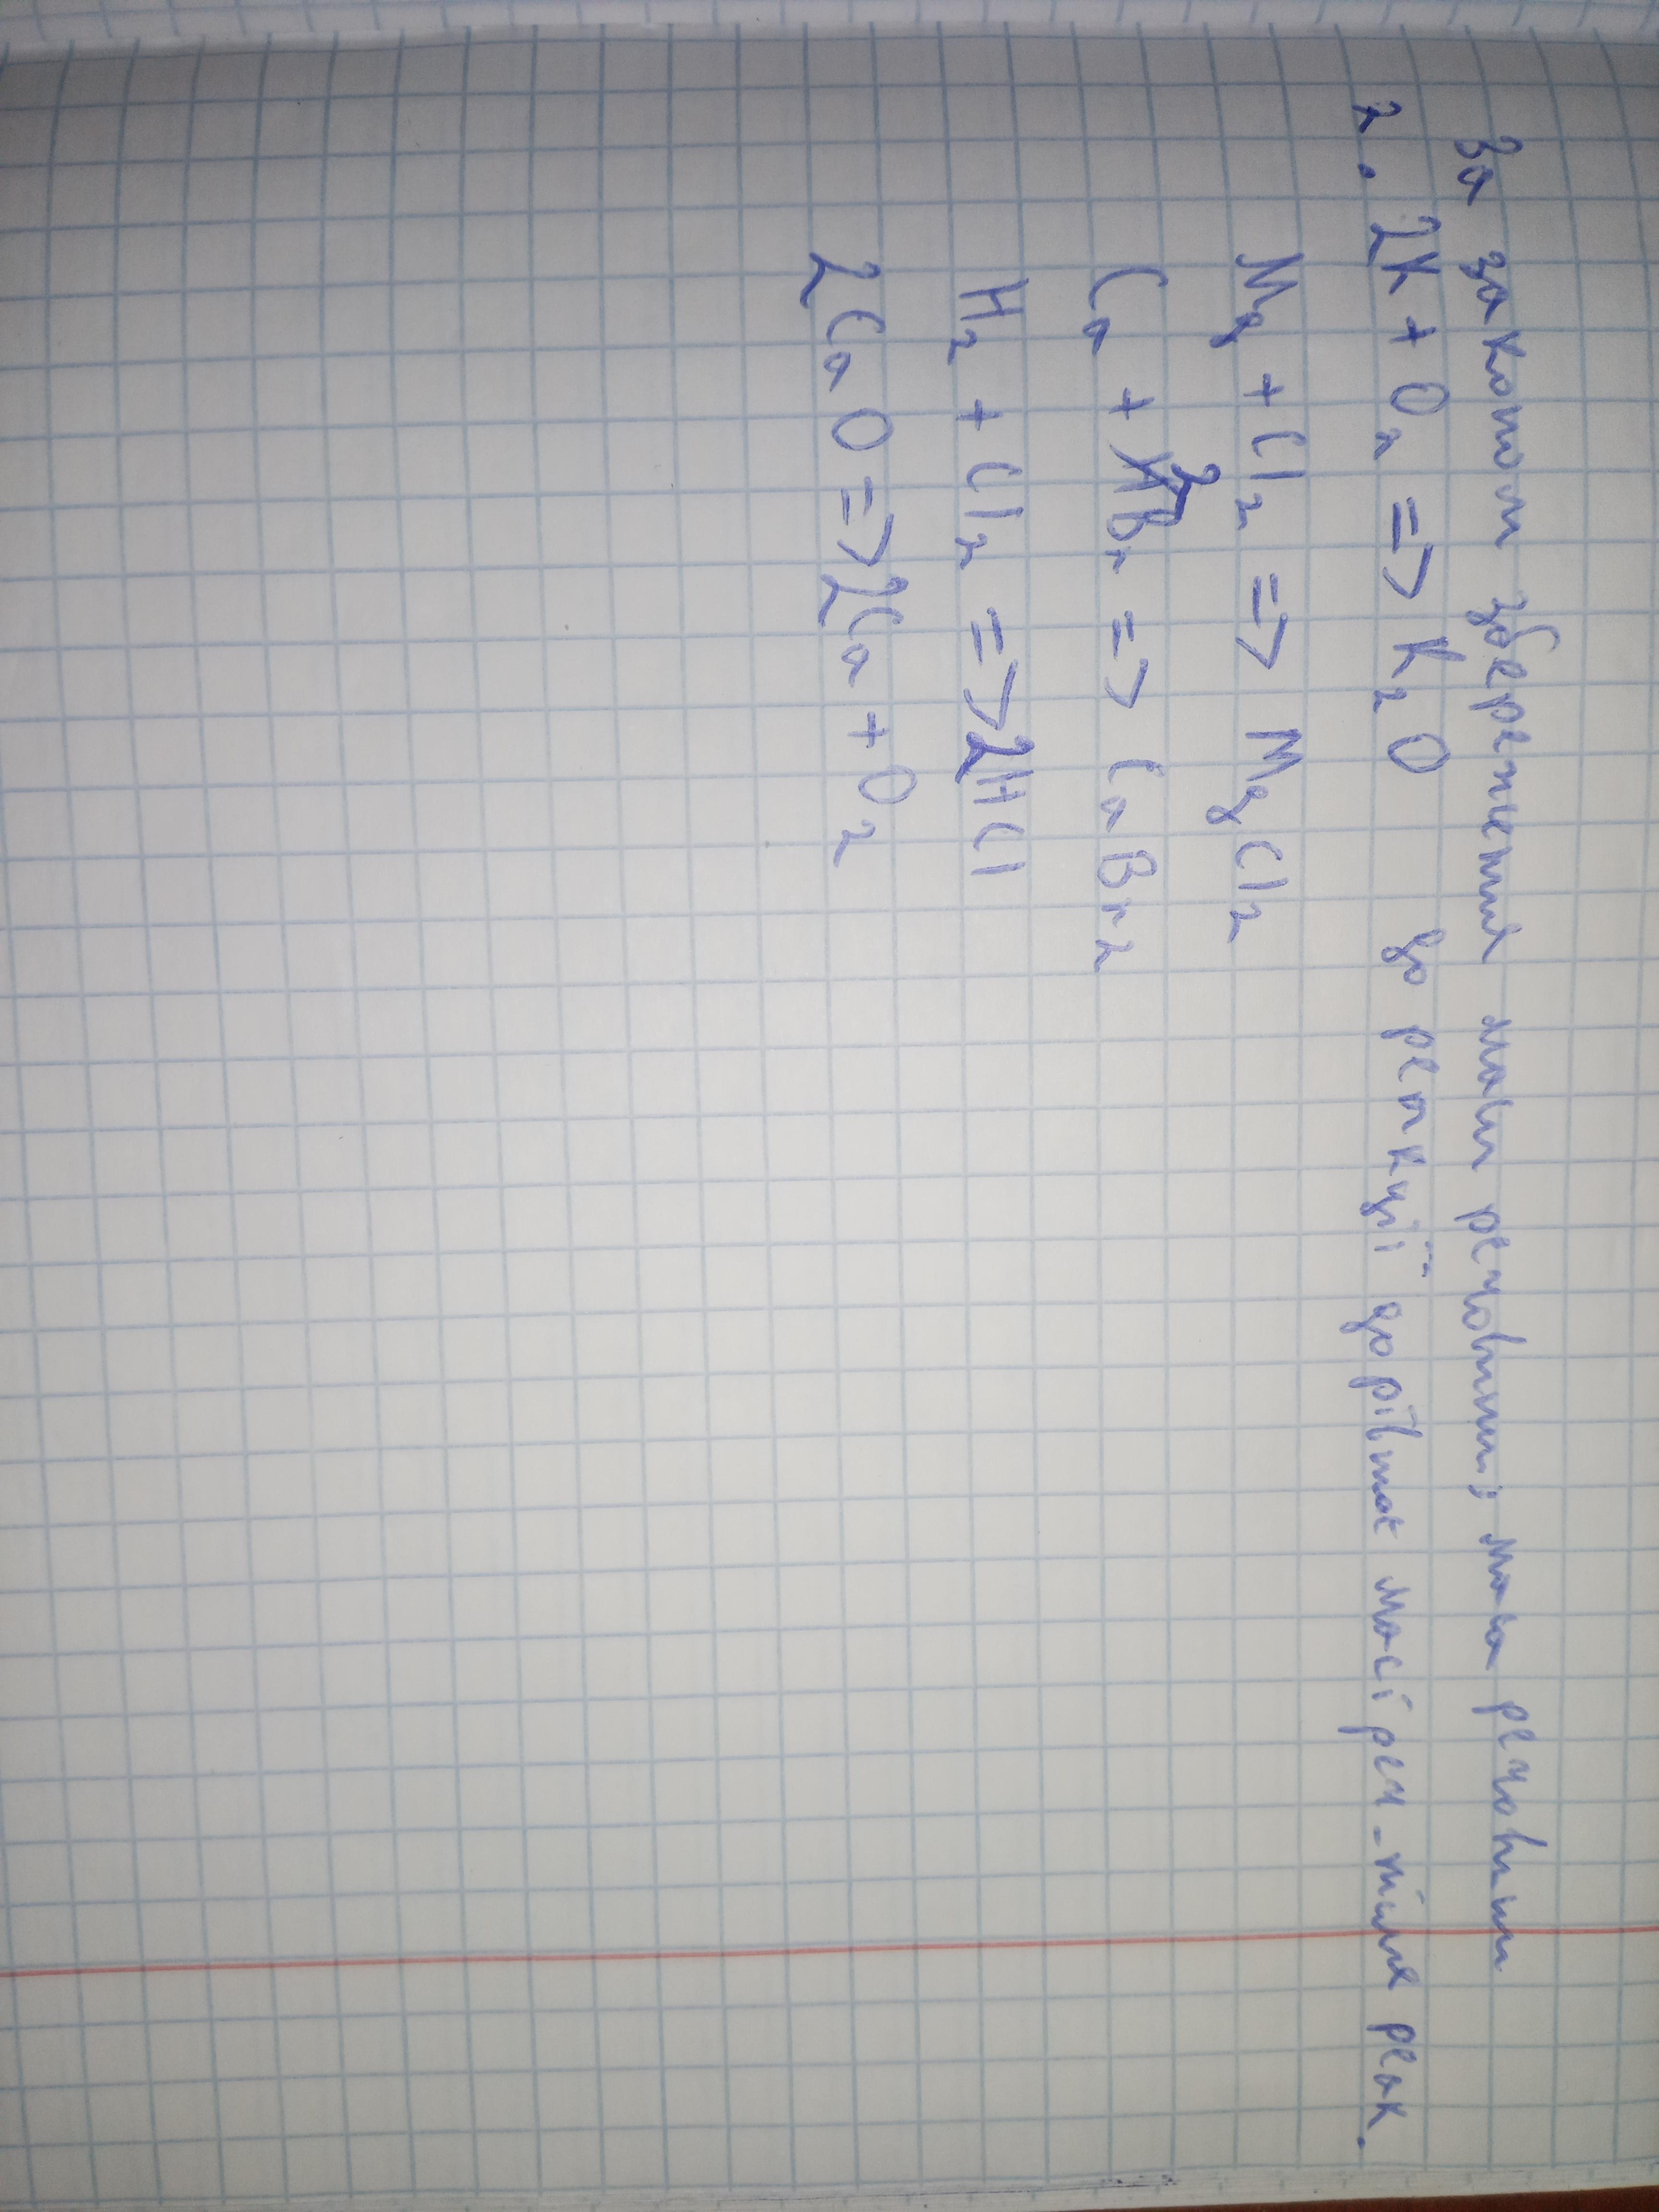 За законом збереження маси речовини, маса речовини
2. 2K + O₂ => K₂O до реакції дорівнює масі реч - після реак.
Mg + Cl₂ => MgCl₂
Ca + Br₂ => CaBr₂
H₂ + Cl₂ => 2HCl
2CaO => 2Ca + O₂